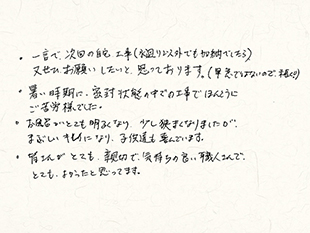 ・一言で、次回の自宅工事(水廻り以外でも可能でしたら)
又ぜひお願いしたいと思っております。(早急ではないので、
・暑い時期に、密封状態の中での工事でほんとうに
ご苦労様でした。
・お風呂がとても明るくなり、少し狭くなりましたが、
まぶしい になり、子供達も喜んでいます。
・皆さんがとても、親切で、気持ちの良い職人さんで、
とても、よかったと思ってます。